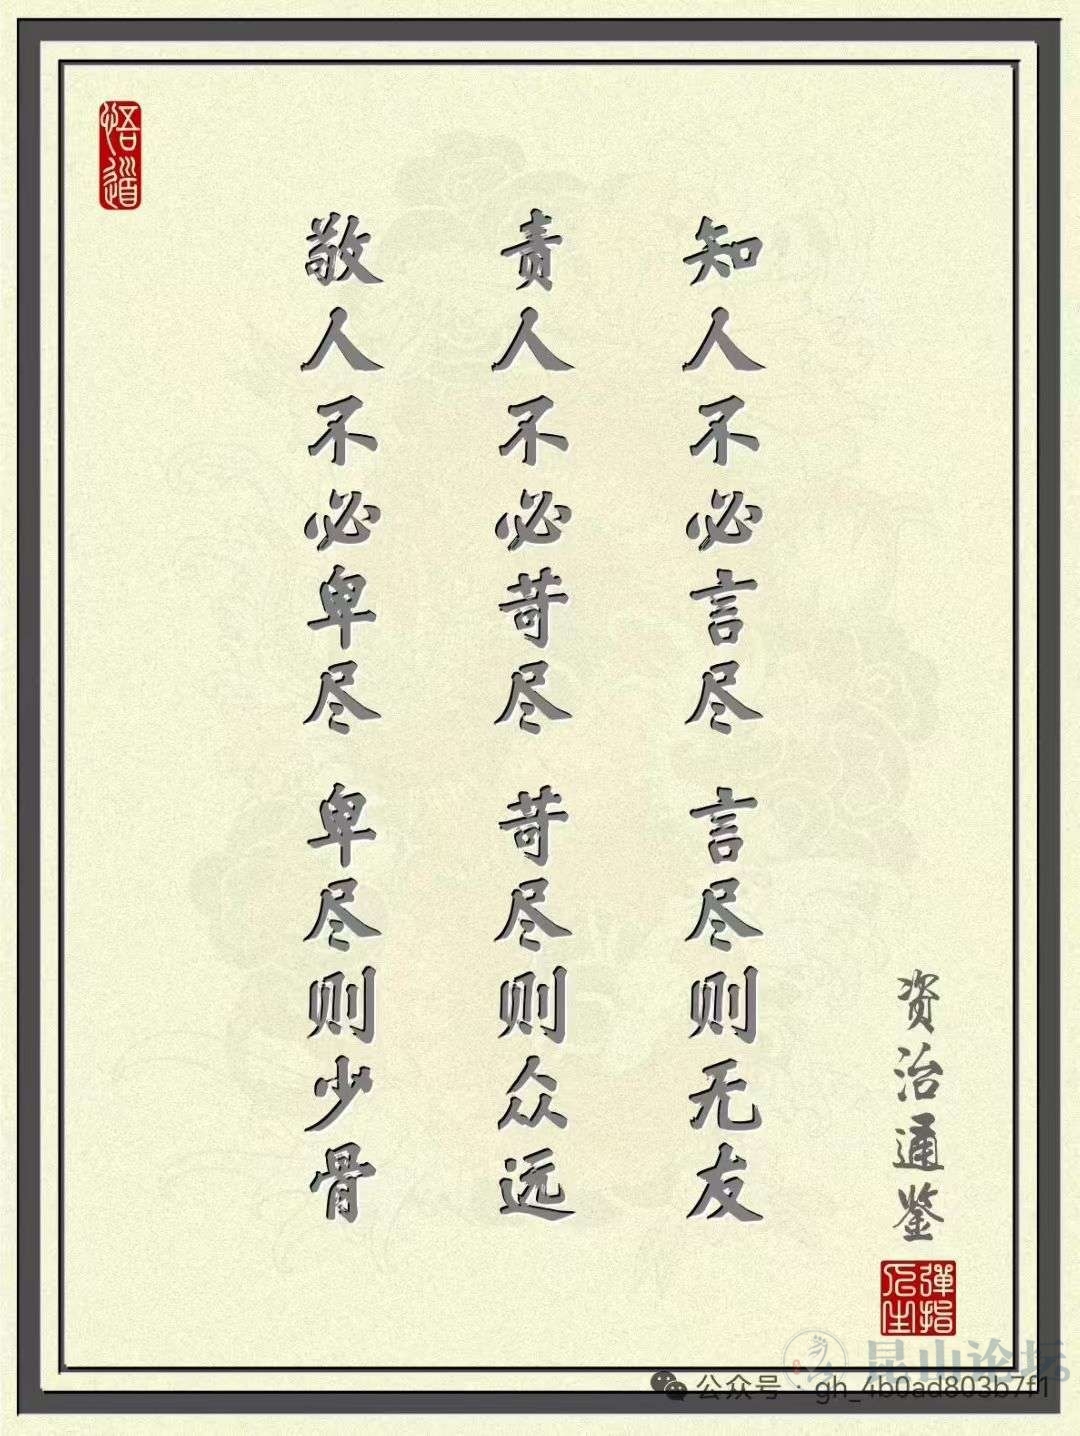 悟道
知人不必言尽 言尽则无友
责人不必苛尽 苛尽则众远
敬人不必卑尽 卑尽则少骨
资治通鉴
弹指人生
昆山论坛
公众号 · gh_4b0ad803b7f1